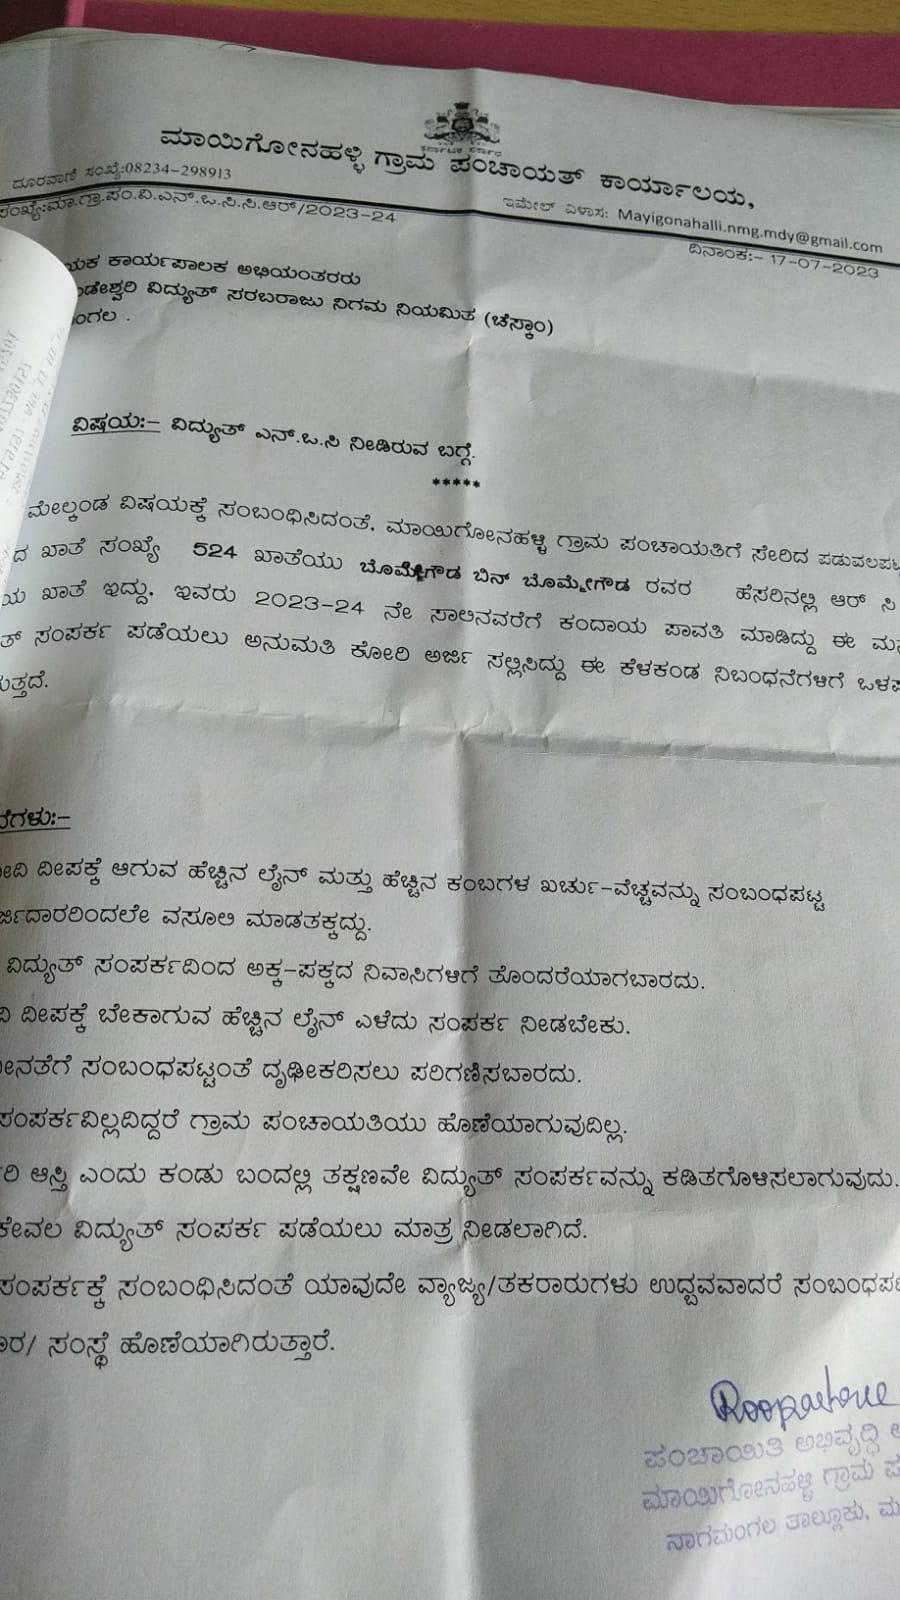 ಮಾಯಿಗೋನಹಳ್ಳಿ ಗ್ರಾಮ ಪಂಚಾಯತ್ ಕಾರ್ಯಾಲಯ,
ದೂರವಾಣಿ ಸಂಖ್ಯೆ:08234-298913
ಇಮೇಲ್ ವಿಳಾಸ: Mayigonahalli.nmg.mdy@gmail.com
ಸಂಖ್ಯೆ:ಮಾ.ಗ್ರಾ.ಪಂ.ವಿ.ಎನ್.ಒ.ಸಿ.ಸಿ.ಆರ್/2023-24
ದಿನಾಂಕ:- 17-07-2023
ಯಕ ಕಾರ್ಯಪಾಲಕ ಅಭಿಯಂತರರು
ಂಡೇಶ್ವರಿ ವಿದ್ಯುತ್ ಸರಬರಾಜು ನಿಗಮ ನಿಯಮಿತ (ಚೆಸ್ಕಾಂ)
ಂಗಲ .
ವಿಷಯ:- ವಿದ್ಯುತ್ ಎನ್.ಒ.ಸಿ ನೀಡಿರುವ ಬಗ್ಗೆ.
*****
ಮೇಲ್ಕಂಡ ವಿಷಯಕ್ಕೆ ಸಂಬಂಧಿಸಿದಂತೆ, ಮಾಯಿಗೋನಹಳ್ಳಿ ಗ್ರಾಮ ಪಂಚಾಯತಿಗೆ ಸೇರಿದ ಪಡುವಲಪಟ್ಟ
ದ ಖಾತೆ ಸಂಖ್ಯೆ 524 ಖಾತೆಯು ಬೊಮ್ಮೇಗೌಡ ಬಿನ್ ಬೊಮ್ಮೇಗೌಡ ರವರ ಹೆಸರಿನಲ್ಲಿ ಆರ್ ಸಿ
ಯ ಖಾತೆ ಇದ್ದು, ಇವರು 2023-24 ನೇ ಸಾಲಿನವರೆಗೆ ಕಂದಾಯ ಪಾವತಿ ಮಾಡಿದ್ದು ಈ ಮನ
ತ್ ಸಂಪರ್ಕ ಪಡೆಯಲು ಅನುಮತಿ ಕೋರಿ ಅರ್ಜಿ ಸಲ್ಲಿಸಿದ್ದು ಈ ಕೆಳಕಂಡ ನಿಬಂಧನೆಗಳಿಗೆ ಒಳಪ
ುತ್ತದೆ.
ನೆಗಳು:-
ೀದಿ ದೀಪಕ್ಕೆ ಆಗುವ ಹೆಚ್ಚಿನ ಲೈನ್ ಮತ್ತು ಹೆಚ್ಚಿನ ಕಂಬಗಳ ಖರ್ಚು-ವೆಚ್ಚವನ್ನು ಸಂಬಂಧಪಟ್ಟ
ರ್ಜಿದಾರರಿಂದಲೇ ವಸೂಲಿ ಮಾಡತಕ್ಕದ್ದು.
ವಿದ್ಯುತ್ ಸಂಪರ್ಕದಿಂದ ಅಕ್ಕ-ಪಕ್ಕದ ನಿವಾಸಿಗಳಿಗೆ ತೊಂದರೆಯಾಗಬಾರದು.
ದಿ ದೀಪಕ್ಕೆ ಬೇಕಾಗುವ ಹೆಚ್ಚಿನ ಲೈನ್ ಎಳೆದು ಸಂಪರ್ಕ ನೀಡಬೇಕು.
ೀನತೆಗೆ ಸಂಬಂಧಪಟ್ಟಂತೆ ದೃಢೀಕರಿಸಲು ಪರಿಗಣಿಸಬಾರದು.
ಸಂಪರ್ಕವಿಲ್ಲದಿದ್ದರೆ ಗ್ರಾಮ ಪಂಚಾಯತಿಯು ಹೊಣೆಯಾಗುವುದಿಲ್ಲ.
ರಿ ಆಸ್ತಿ ಎಂದು ಕಂಡು ಬಂದಲ್ಲಿ ತಕ್ಷಣವೇ ವಿದ್ಯುತ್ ಸಂಪರ್ಕವನ್ನು ಕಡಿತಗೊಳಿಸಲಾಗುವುದು.
ಕೇವಲ ವಿದ್ಯುತ್ ಸಂಪರ್ಕ ಪಡೆಯಲು ಮಾತ್ರ ನೀಡಲಾಗಿದೆ.
ಸಂಪರ್ಕಕ್ಕೆ ಸಂಬಂಧಿಸಿದಂತೆ ಯಾವುದೇ ವ್ಯಾಜ್ಯ/ತಕರಾರುಗಳು ಉದ್ಭವವಾದರೆ ಸಂಬಂಧಪಟ
ಾರ/ ಸಂಸ್ಥೆ ಹೊಣೆಯಾಗಿರುತ್ತಾರೆ.
ಪಂಚಾಯಿತಿ ಅಭಿವೃದ್ಧಿ ಅ
ಮಾಯಿಗೋನಹಳ್ಳಿ ಗ್ರಾಮ ಪ
ನಾಗಮಂಗಲ ತಾಲ್ಲೂಕು, ಮ